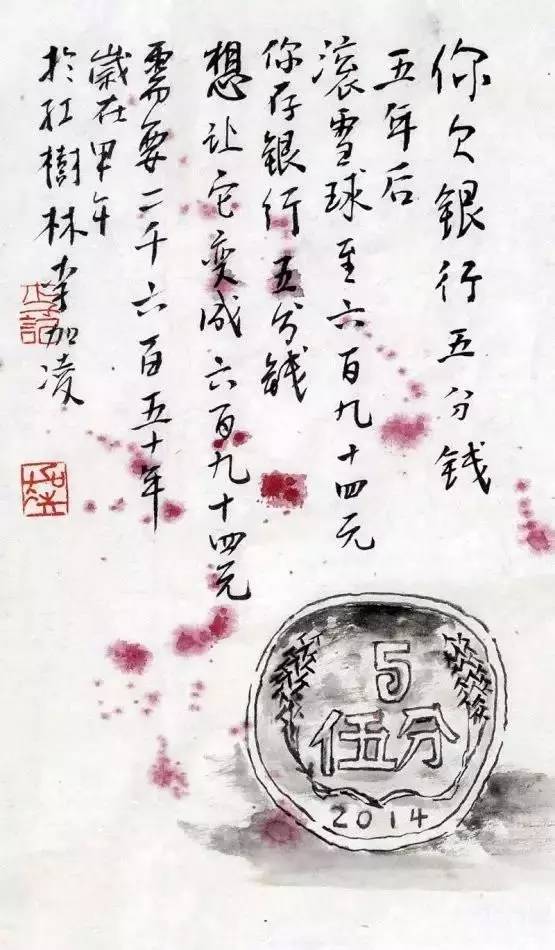 你欠银行五分钱
五年后
滚雪球至六百九十四元
你存银行五分钱
想让它变成六百九十四元
需要二千六百五十年
岁在甲午
於红樹林李加凌
5
伍分
2014